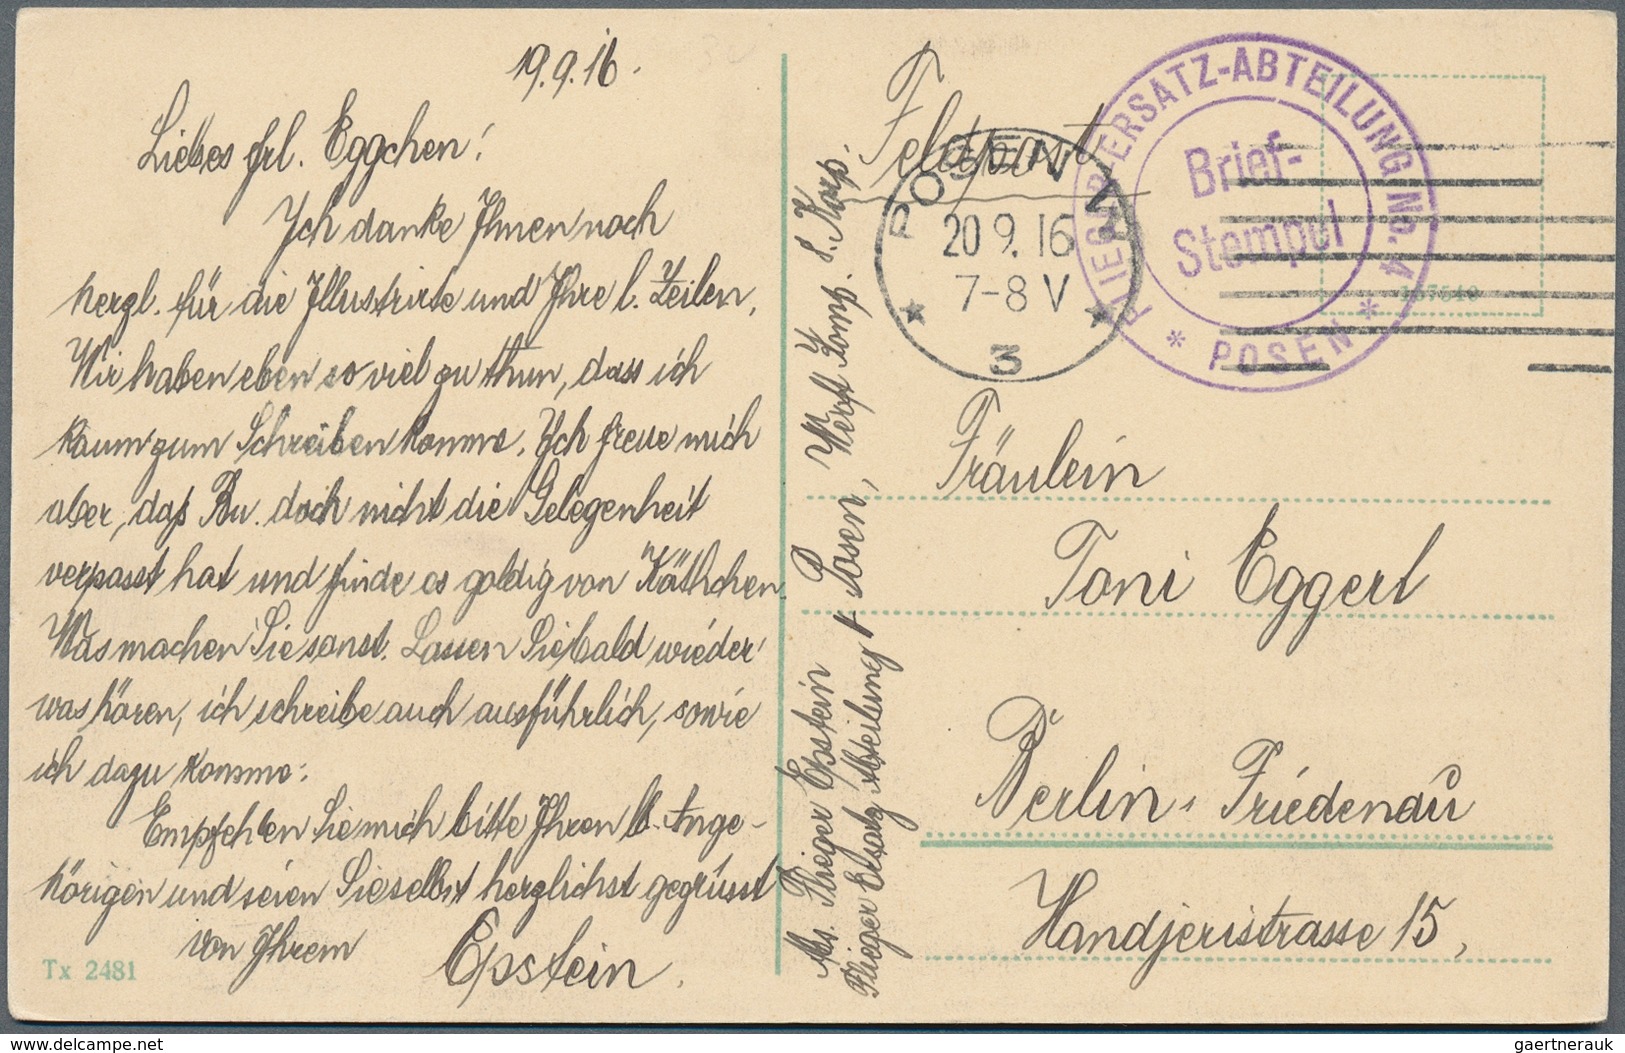 19.9.16.
Liebes Frl. Eggchen!
Ich danke Ihnen noch
herzl. für die Illustrirte und Ihre l. Zeilen.
Wir haben eben so viel zu thun, dass ich
kaum zum Schreiben komme. Ich freue mich
aber, daß Bu. doch nicht die Gelegenheit
verpasst hat und finde es goldig von "Käthchen
Was machen Sie sonst. Lassen Sie bald wieder
was hören, ich schreibe auch ausführlich, sowie
ich dazu komme.
Empfehlen Sie mich bitte Ihren lb. Ange-
hörigen und seien Sie selbst herzlichst gegrüsst
von Ihrem
Epstein.
Tx 2481
Abs. Flieger Epstein
Flieger Ersatz Abteilung 4 Posen, Werft Komp. 8. Korp.
Feldpost
POSEN
20 9. 16
7-8 V
3
FLIEGER-ERSATZ-ABTEILUNG No. 4
Brief-
Stempel
* POSEN *
Fräulein
Toni Eggerl
Berlin-Friedenau
Handjeristrasse 15,
delcampe.net
gaertnerauk